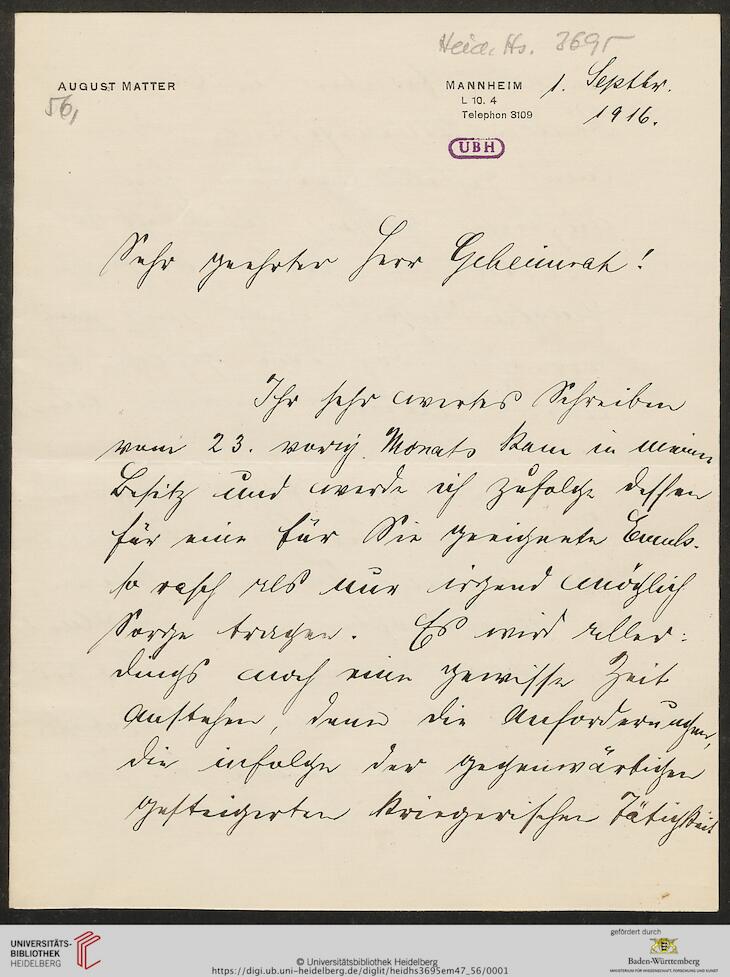 Heid. Hs. 3695
AUGUST MATTER
56,
MANNHEIM
L 10. 4
Telephon 3109
1. Septbr.
1916.
UBH
Sehr geehrter Herr Geheimrat!
Ihr sehr wertes Schreiben
vom 23. vorig. Monats kam in meinen
Besitz und werde ich zufolge dessen
für eine für Sie geeignete
so rasch als nur irgend möglich
Sorge tragen. Es wird aller:
dings noch eine gewisse Zeit
anstehen, denn die Anforderungen,
die infolge der gegenwärtigen
gesteigerten kriegerischen Tätigkeit
UNIVERSITÄTS-
BIBLIOTHEK
HEIDELBERG
© Universitätsbibliothek Heidelberg
https://digi.ub.uni-heidelberg.de/diglit/heidhs3695em47_56/0001
gefördert durch
Baden-Württemberg
MINISTERIUM FÜR WISSENSCHAFT, FORSCHUNG UND KUNST